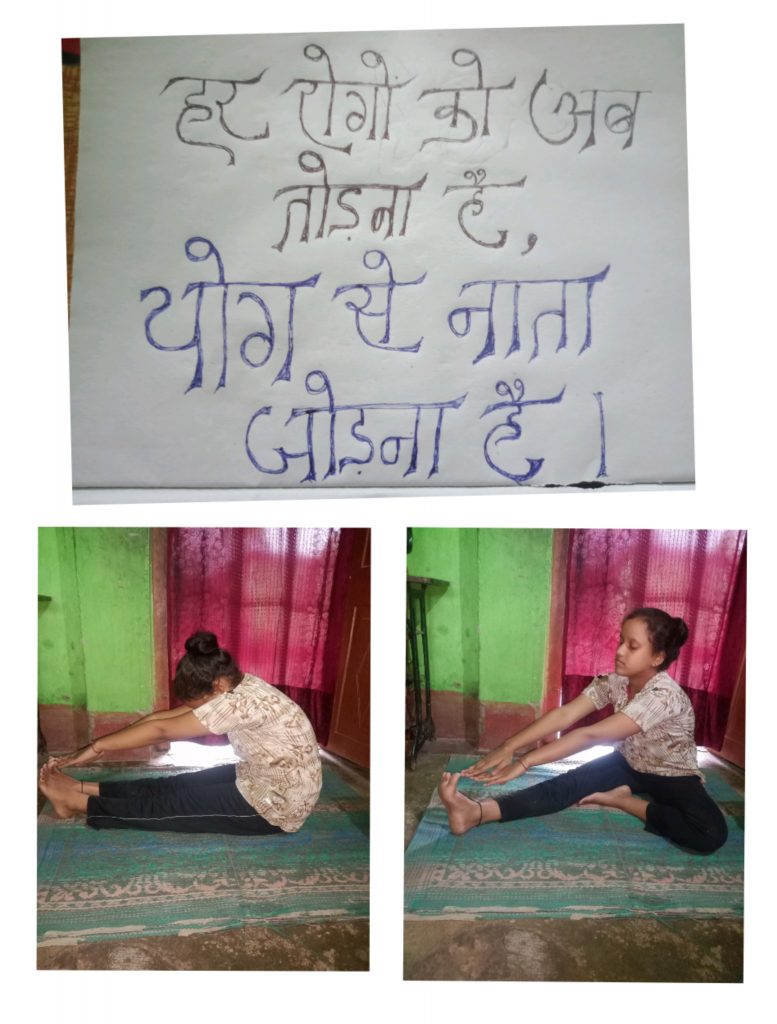 हर रोगों को अब
तोड़ना है,
योग से नाता
जोड़ना है।